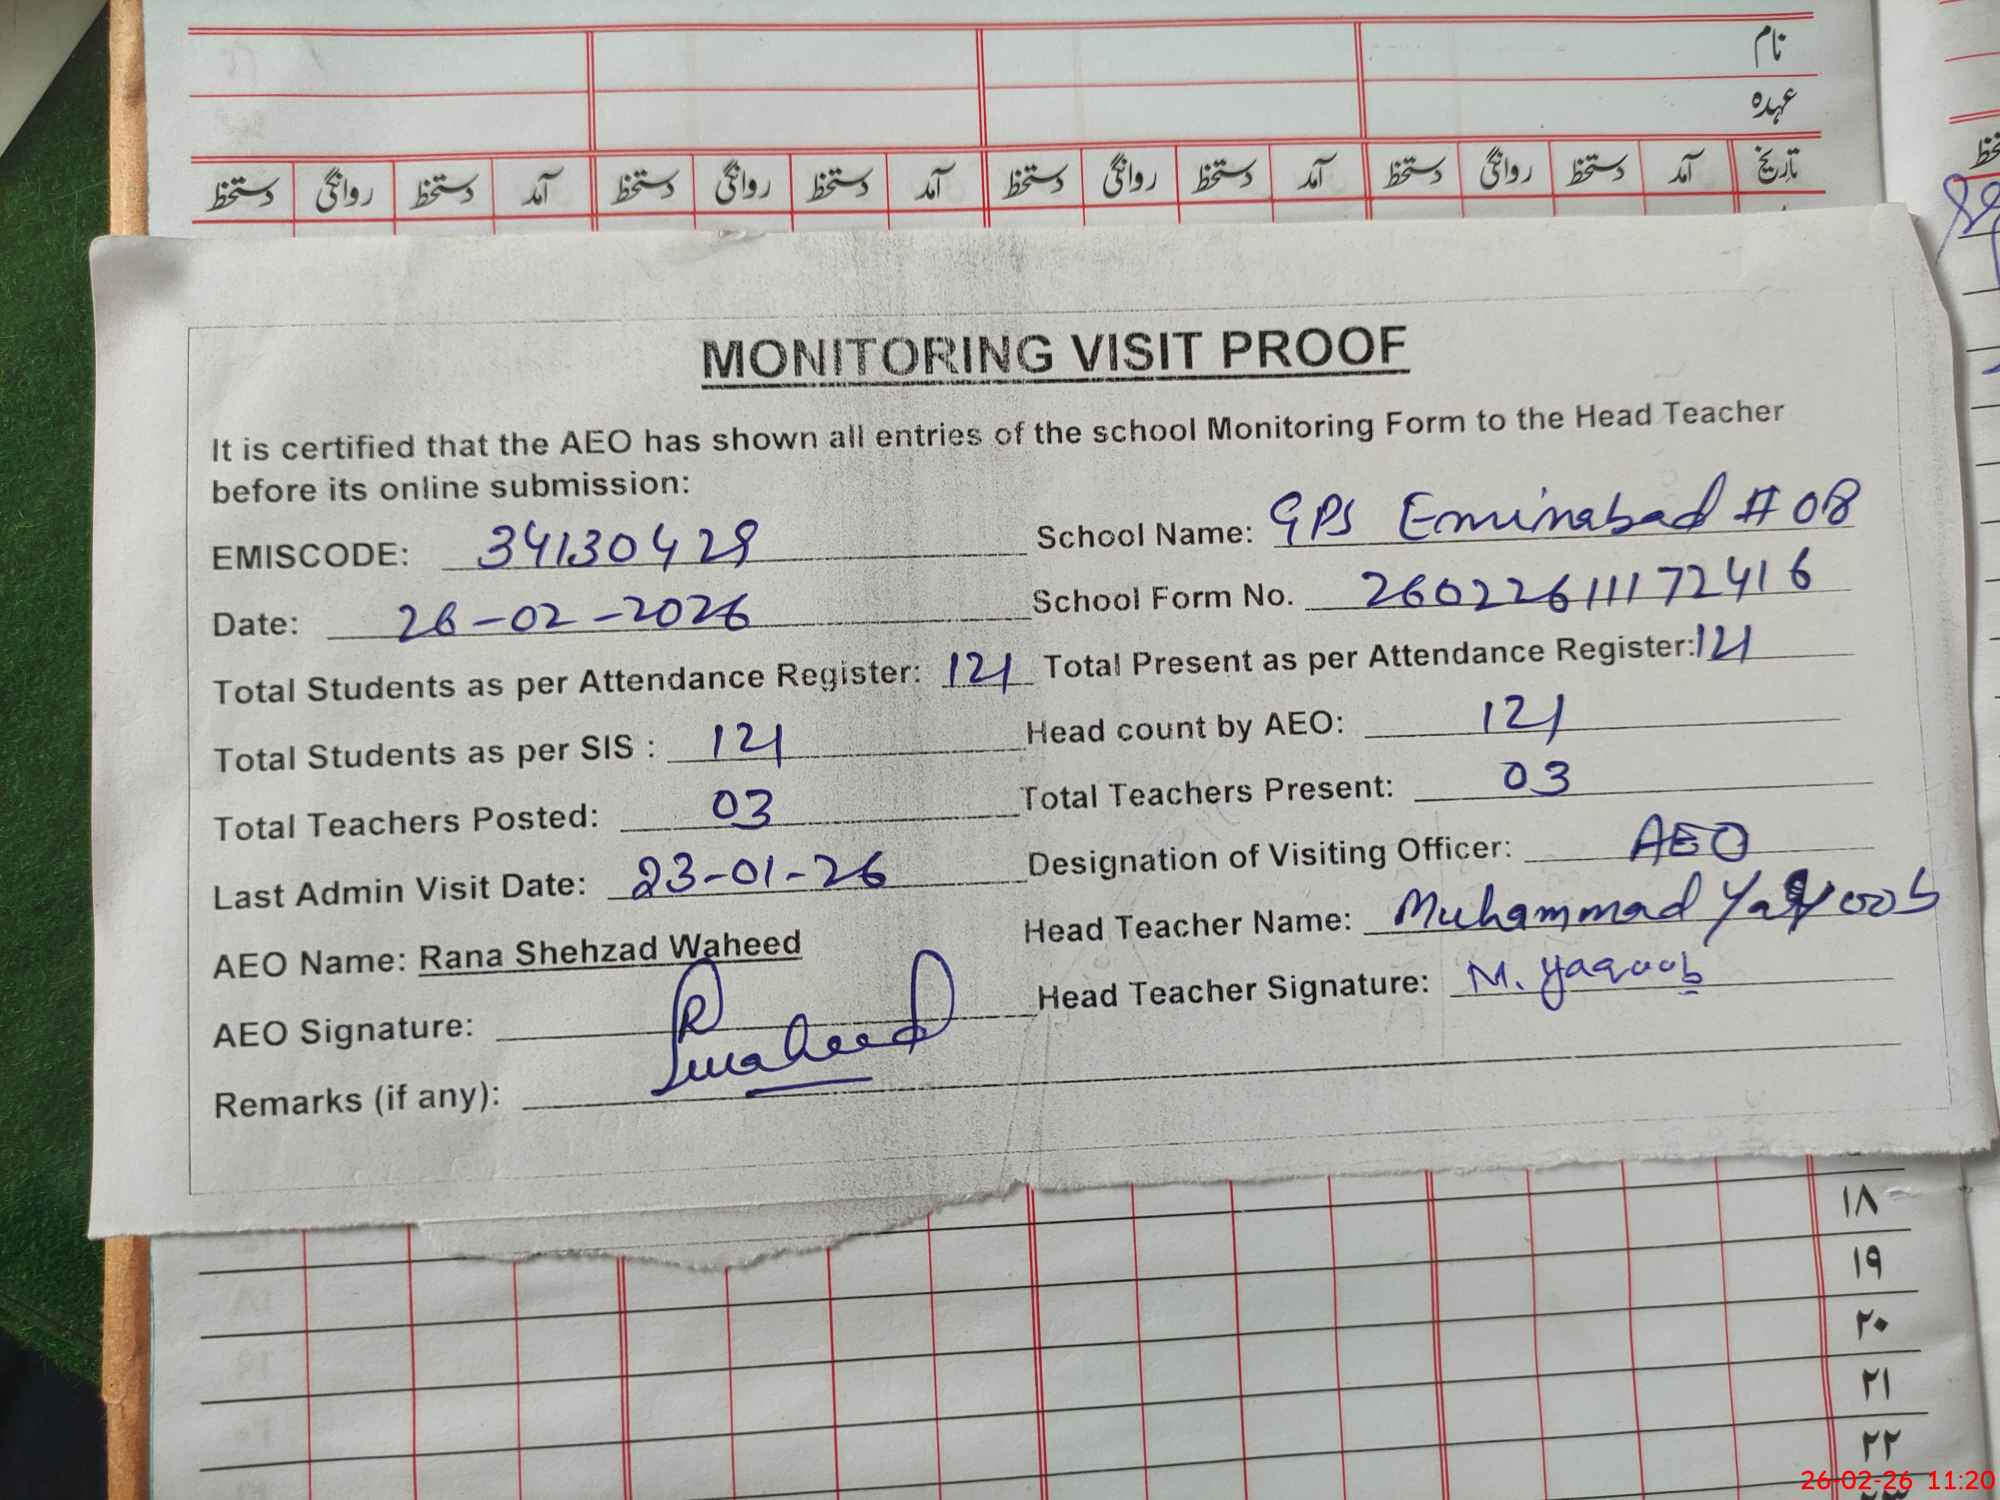 نام
عہدہ
تاریخ آمد دستخط روانگی دستخط آمد دستخط روانگی دستخط آمد دستخط روانگی دستخط آمد دستخط روانگی دستخط
MONITORING VISIT PROOF
It is certified that the AEO has shown all entries of the school Monitoring Form to the Head Teacher
before its online submission:
EMISCODE: 34130429 School Name: GPS Eminabad # 08
Date: 26-02-2026 School Form No. 26022611172416
Total Students as per Attendance Register: 121 Total Present as per Attendance Register: 121
Total Students as per SIS : 121 Head count by AEO: 121
Total Teachers Posted: 03 Total Teachers Present: 03
Last Admin Visit Date: 23-01-26 Designation of Visiting Officer: AEO
AEO Name: Rana Shehzad Waheed Head Teacher Name: Muhammad Yaqoob
AEO Signature: Rswaheed Head Teacher Signature: M. Yaqoob
Remarks (if any):
١٨
١٩
٢٠
٢١
٢٢
26-02-26 11:20